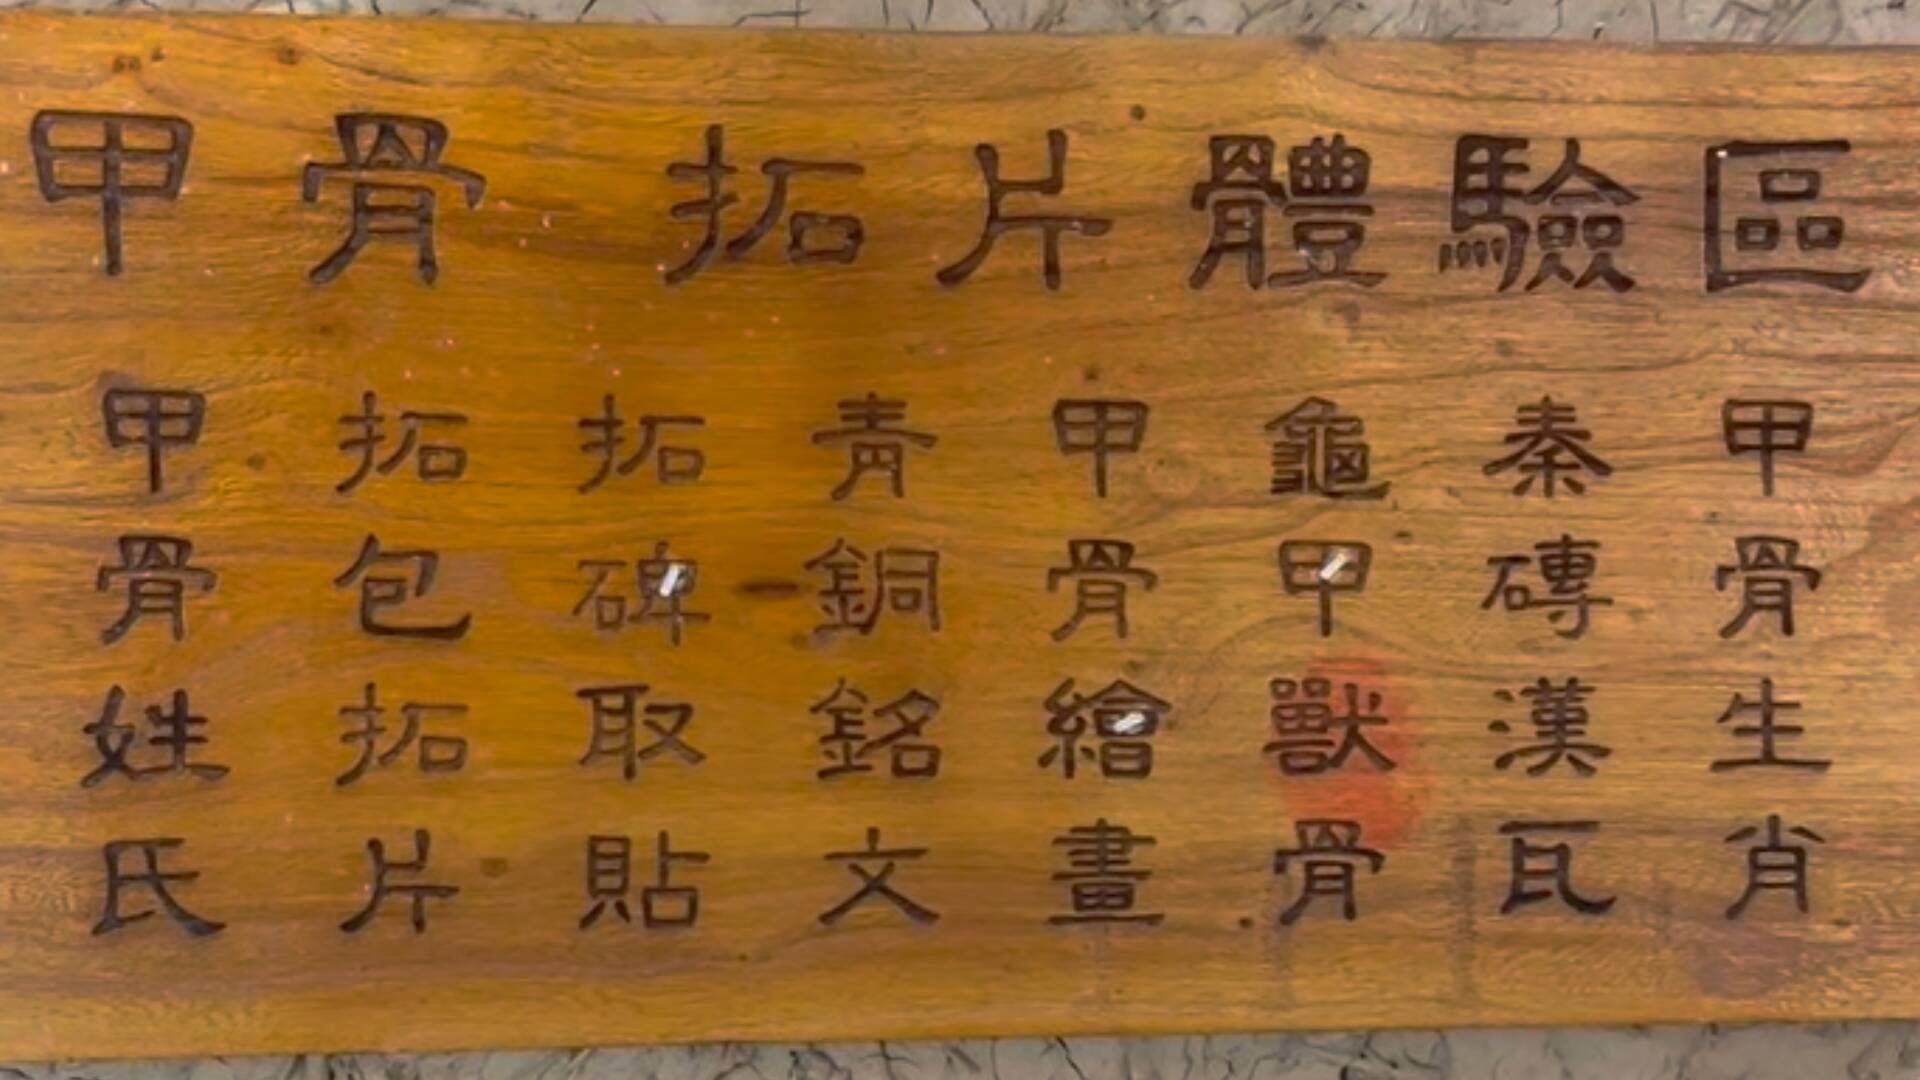 甲骨拓片體驗區
甲骨姓氏
拓包拓片
拓碑取貼
青銅銘文
甲骨繪畫
龜甲獸骨
秦磚漢瓦
甲骨生肖